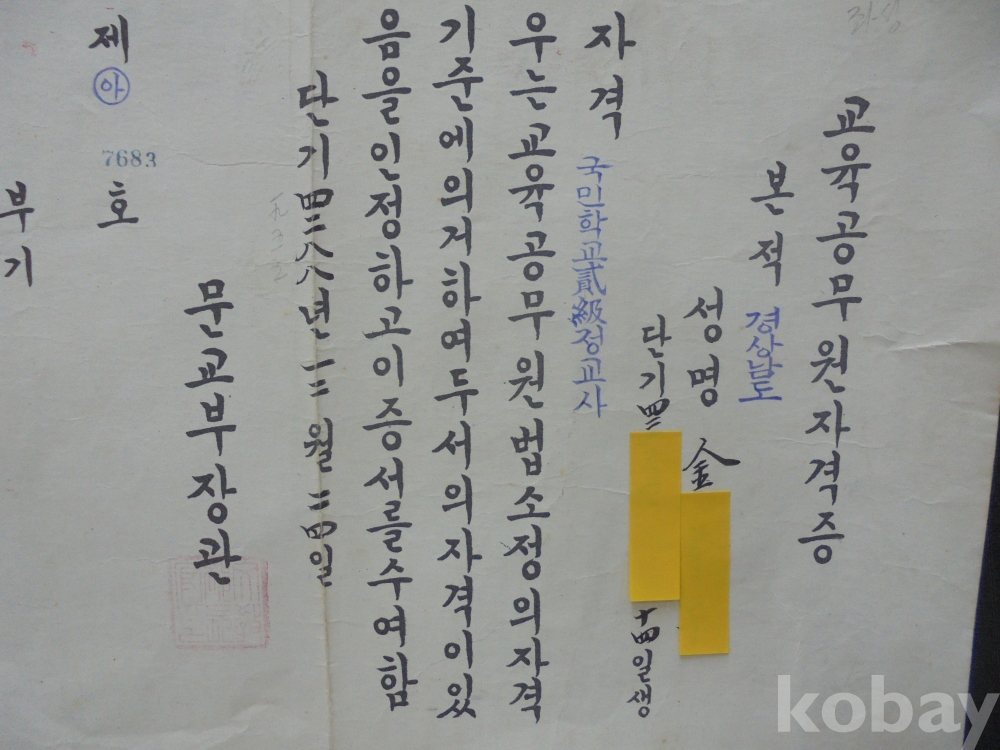 교육공무원자격증
본적 경상남도
성명 金
단기四二 十四일생
자격 국민학교貳級정교사
우는교육공무원법소정의자격
기준에의거하여두서의자격이있
음을인정하고이증서를수여함
단기四二八八년一二월二四일
문교부장관
제 아 7683 호
부기
kobay